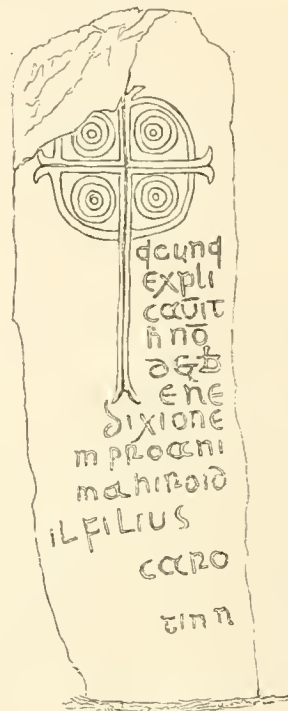 qcunq
expli
caūit
h̄ nō
deƀ
ene
dixione
m pro ani
ma hiroid
il filius
caro
tinn